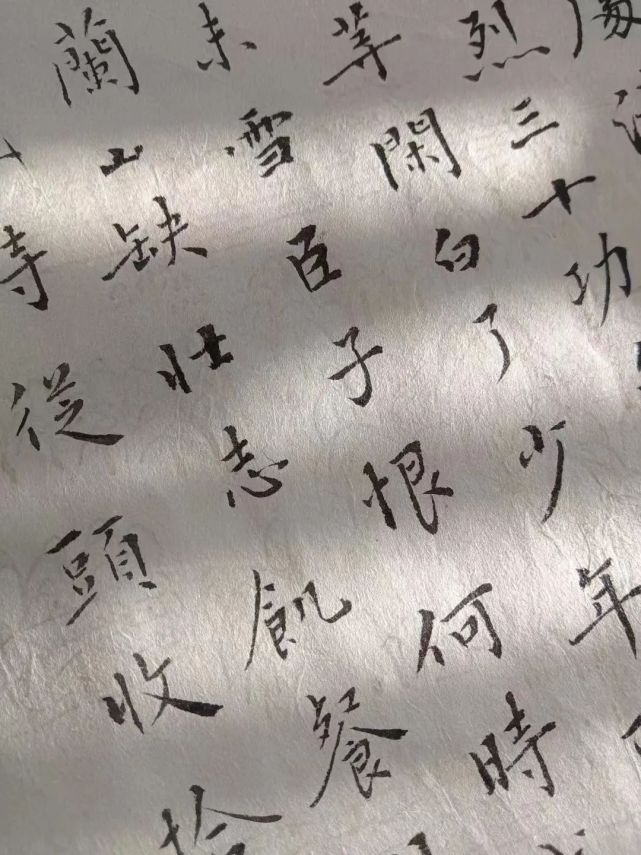 烈三十功
等閑白了少年
未雪臣子恨何時
蘭山缺壮志飢餐
從頭收拾